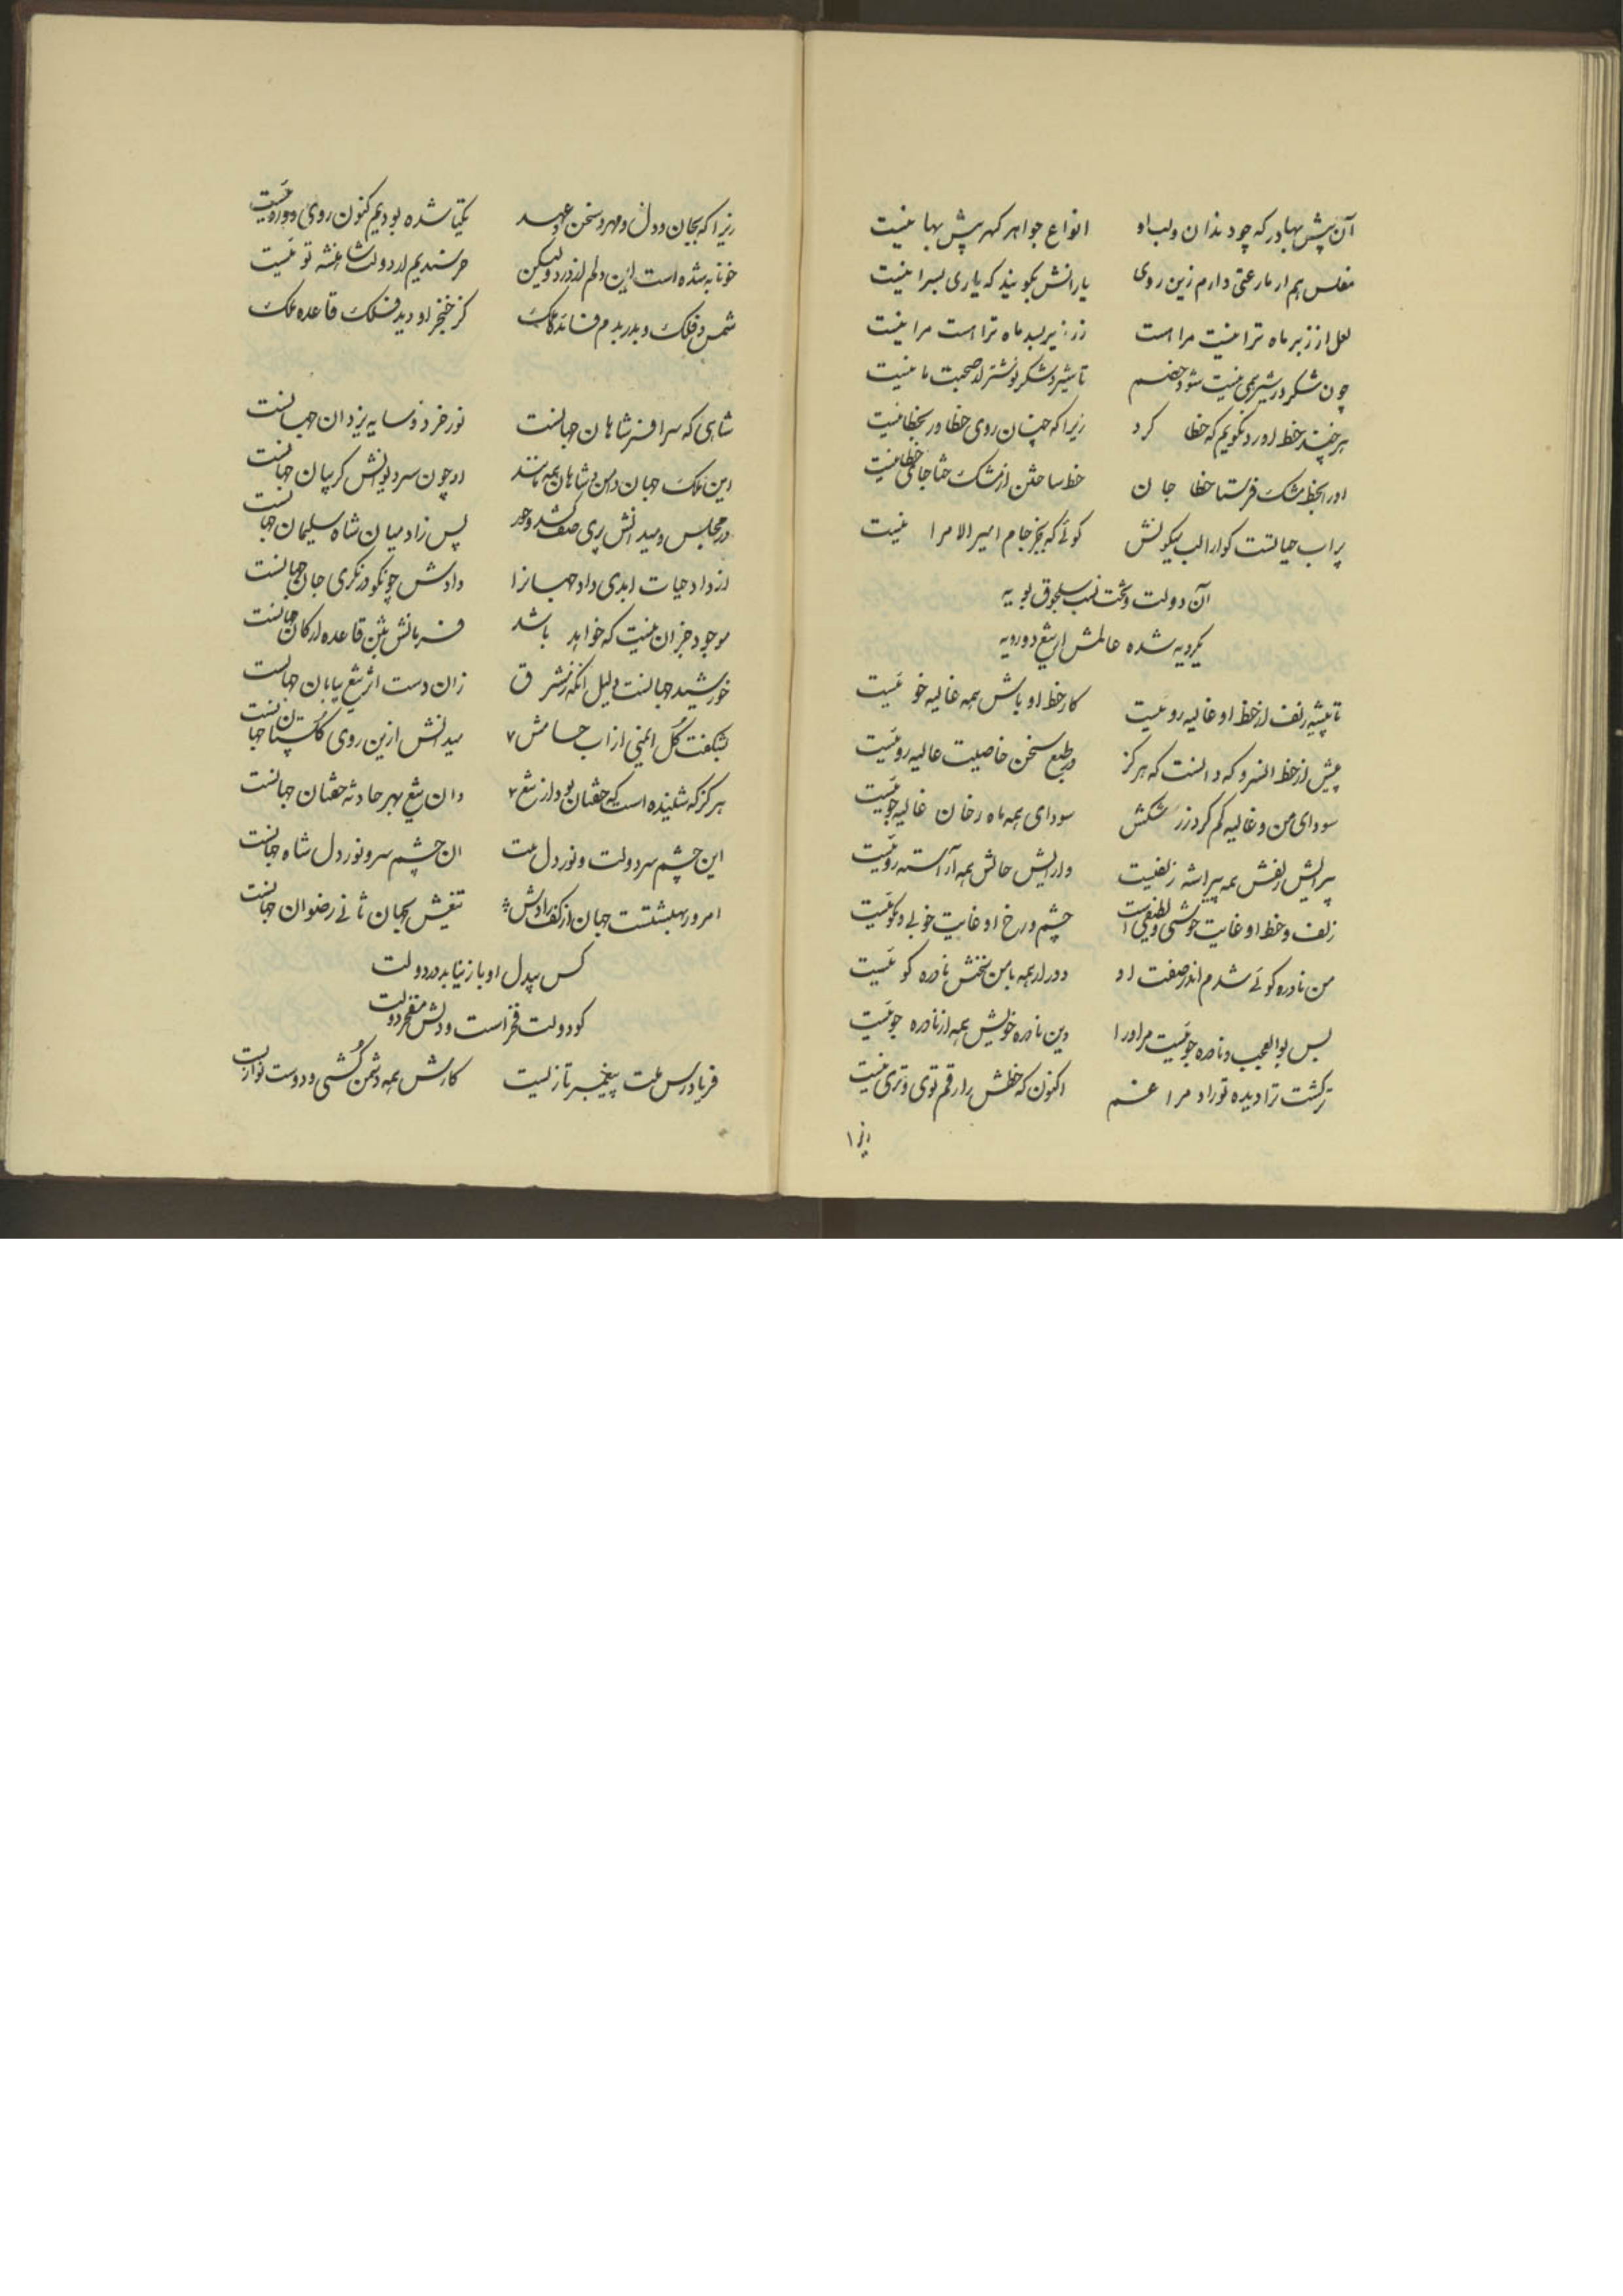 آن پیش بها در که چو دندان و لب او انواع جواهر گهر پیش بها نیست
مفلس هم از دارم زین روی یارانش بگویند که یاری بسرا نیست
لعل از زبر ماه ترا نیست مرا است زر زیر ماه ترا است مرا نیست
چون شکر در نیست شود تا شیر و شکر صحبت ما نیست
هر چند خط آورد نگویم که خطا کرد زیرا که چنان روی خطا ور بخطا نیست
او را بخط مشک فرستا خطا جان خط ساختن از مشک خطا نیست
پر آب حیاتست کوئی که بجز جام امیر الامرا نیست
آن دولت و بخت نسب سلجوق بویه
یکرویه شده عالمش از تیغ دورویه
تا پیشه زلف از خط او غالیه رو نیست کار خط او باش همه غالیه خو نیست
پیش از خط که دانست که هرگز در طبع سخن خاصیت غالیه رو نیست
سودای من و غالیه کم کرد زر شکش سودای همه ماه رخان غالیه جو نیست
پیرایش زلفش همه پیراسته زلفیست وارایش حالش همه آراسته رو نیست
زلف و خط او غایت خوشی و لطیفی است چشم و رخ او غایت خوبی و نکو نیست
من نادره کوئی شدم اندر صفت او دور از همه با من سخنش نادره کو نیست
بس بوالعجب و نادره جو نیست مر او را وین نادره خویش همه از نادره جو نیست
ترکشت ترا دیده تو راد مرا غم اکنون که خطش را رقم توی و تری نیست
زیرا
زیرا که بجان و دل و مهر و سخن و عهد یکتا شده بودیم کنون روی دو رو نیست
خونابه شده است این دلم از درد ولیکن خرسندیم از دولت شاهنشه تو نیست
شمس فلک و بدر کز خنجر او دید فلک قاعده ملک
شاهی که سر افسر شاهان جهانست نور خرد و سایه یزدان جهانست
این ملک جهان دامن و شاهان همه مانند او چون سر دیوانش گریبان جهانست
در مجلس و میدانش پری صف کشد و حور پس زاد میان شاه سلیمان جهانست
از داد حیات ابدی داد جهانرا دادش چو نکو در نگری جان جهانست
موجود جز آن نیست که خواهد باشد فرمانش بتن قاعده ارکان جهانست
خورشید جهانست دلیل آنکه ز مشرق زان دست اثر تیغ بیابان جهانست
بشکفت گل ایمنی از آب حسامش میدانش ازین روی گلستان جهانست
هر گز که شنیده است که خفتان بود از تیغ وان تیغ بهر حادثه خفتان جهانست
این چشم سر دولت و نور دل ملت آن چشم سر و نور دل شاه جهانست
امروز بهشتست جهان از کف رادش تیغش بجهان ثانی رضوان جهانست
کس بیدل او باز نیابد در دولت
کو دولت فخر است و دلش مفخر دولت
فریادرس ملت پیغمبر تازیست کارش همه دشمن کشی و دوست نوازیست